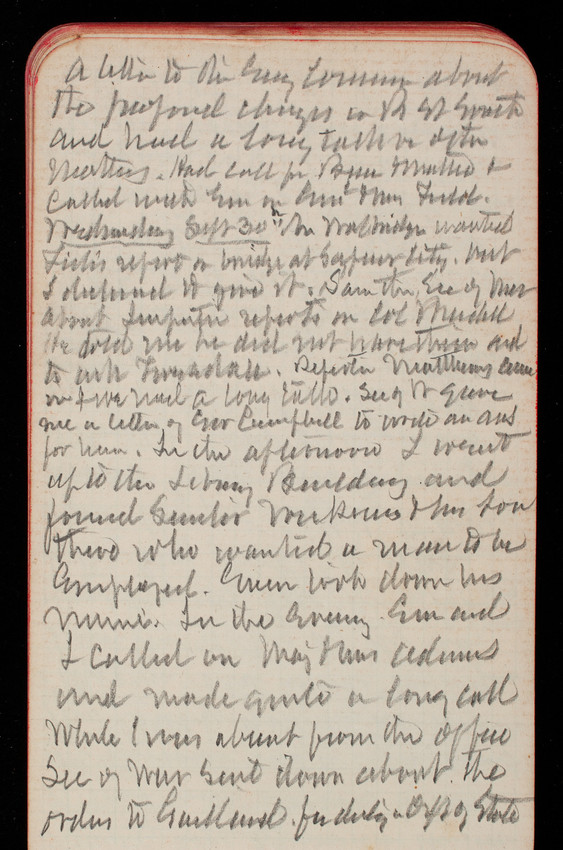 A letter to the Eng Commr about
the proposed changes in R St South
and had a long talk on other
matters. Had call fr Benn &
Called with Em on Genl & Mrs
Wednesday Sept 30th Mr Walbridge wanted
report on bridge at City. but
I declined to give it. Saw the Sec of War
about reports on Col
He told me he did not have them and
to ask. Reporter Matthews came
in & we had a long talk. Sec of W gave
me a letter of Gov Campbell to write an ans
for him. In the afternoon I went
up to the Library Building and
found Senator & his Son
there who wanted a man to be
Employed. Green took down his
name. In the Evening Em and
I called on Maj & Mrs Adams
and made quite a long call
While I was absent from the office
Sec of War sent down about the
orders to for duty in Dept of State